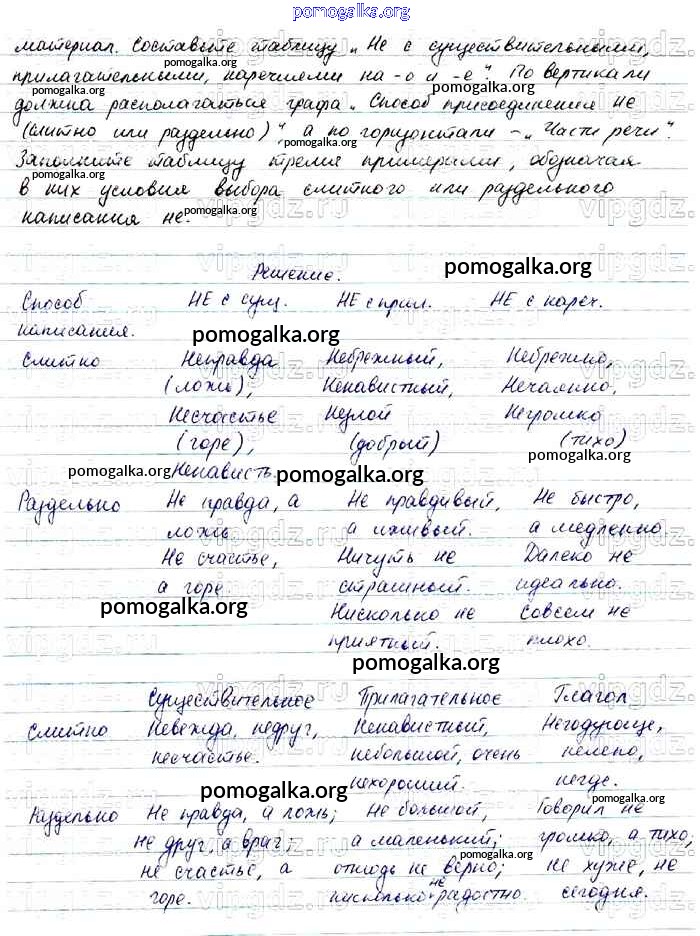 pomogalka.org
материал. Составьте таблицу „Не с существительными,
прилагательными, наречиями на -о и -е". По вертикали
должна располагаться графа „Способ присоединения не
(слитно или раздельно)", а по горизонтали – „Части речи".
Заполните таблицу тремя примерами, обозначая
в них условия выбора слитного или раздельного
написания не.
Решение.
Способ НЕ с сущ. НЕ с прил. НЕ с нареч.
написания.
Слитно Неправда Небрежный, Небрежно,
(ложь), Ненавистный, Нечаянно,
Несчастье Незлой Негромко
(горе), (добрый) (тихо)
Ненависть.
Раздельно Не правда, а Не правдивый, Не быстро,
ложь. а лживый. а медленно
Не счастье, Ничуть не Далеко не
а горе страшный. идеально.
Нисколько не Совсем не
приятный. плохо.
Существительное Прилагательное Глагол
Слитно Невежда, недруг, Ненавистный, Негодующе,
несчастье. небольшой, очень нелепо,
нехороший. негде.
Раздельно Не правда, а ложь; Не большой, Говорил не
не друг, а враг; а маленький; громко, а тихо;
не счастье, а отнюдь не верно; не хуже, не
горе. нисколько не радостно. сегодня.